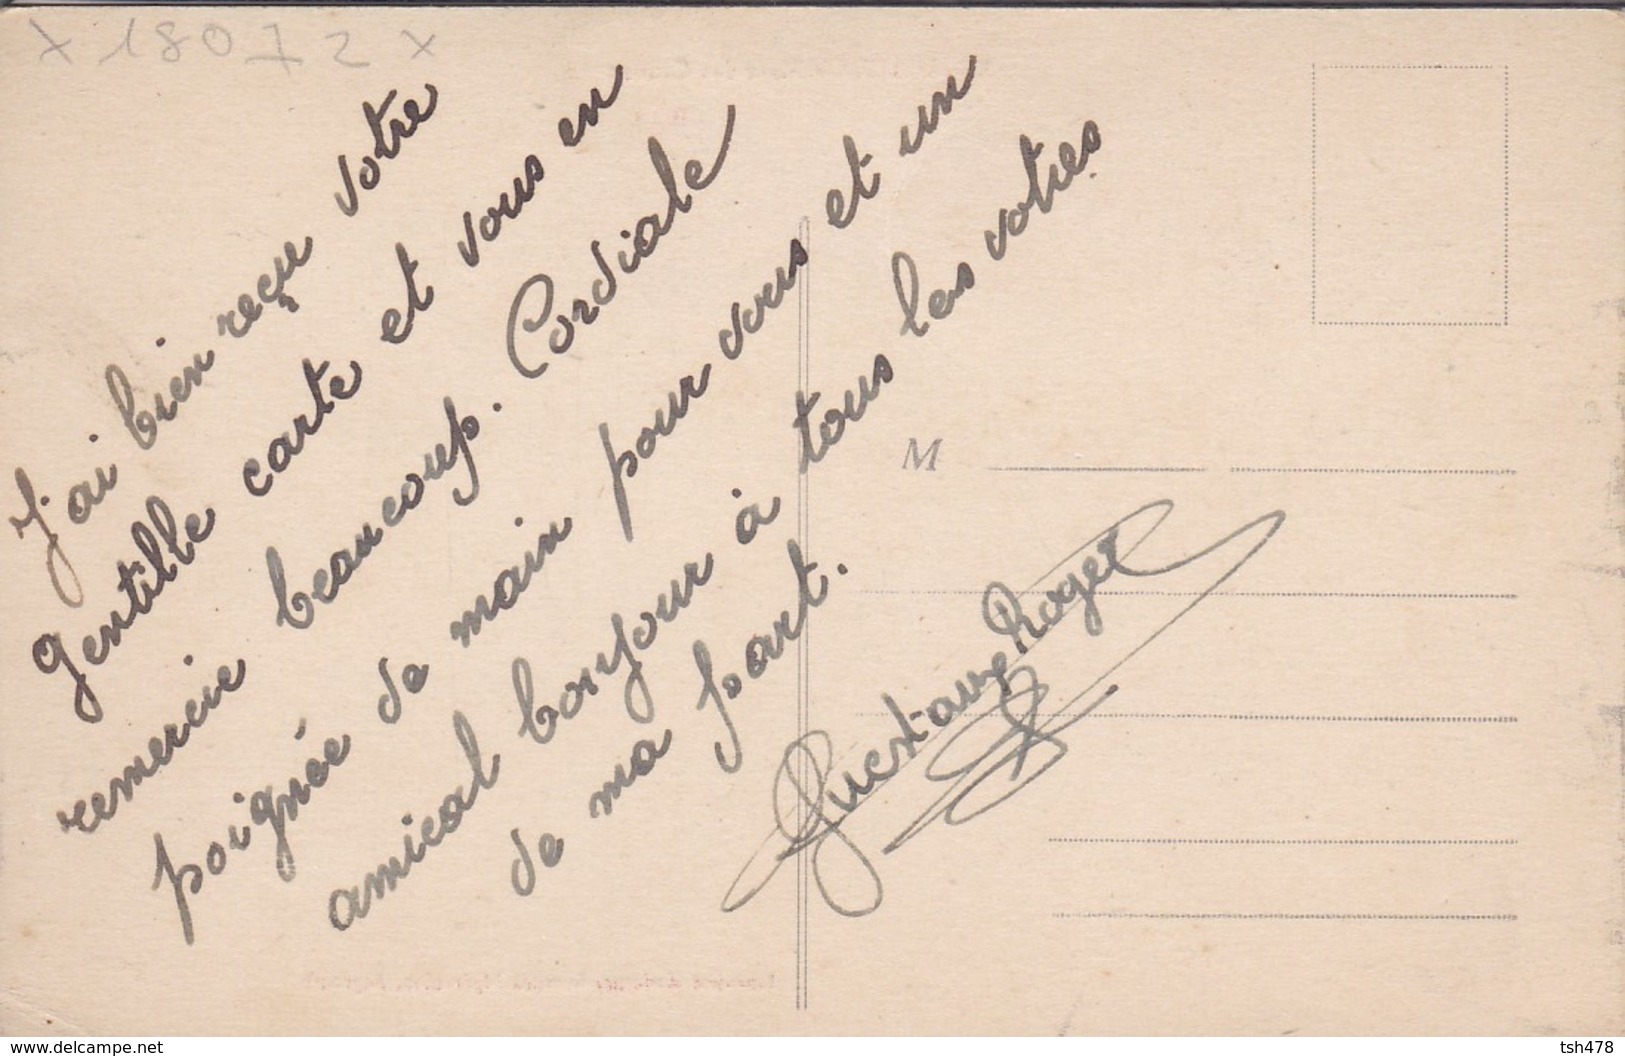 x 18072 x
J'ai bien reçu votre
gentille carte et vous en
remercie beaucoup. Cordiale
poignée de main pour vous et un
amical bonjour à tous les votres
de ma part.
M
Roger
www.delcampe.net
tsh478